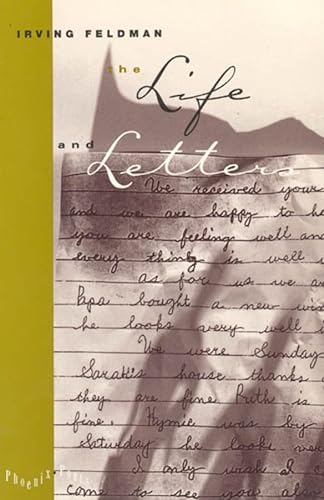 IRVING FELDMAN
the Life
and Letters
We received your
and we are happy to he
you are feeling well and
every thing is well
as for us we a
Papa bought a new win
he looks very well
We were Sunday
Sarah's house thanks
they are fine Ruth is
fine. Hymie was by
Saturday he looks wer
I only wish I c
come to see you
Phoenix